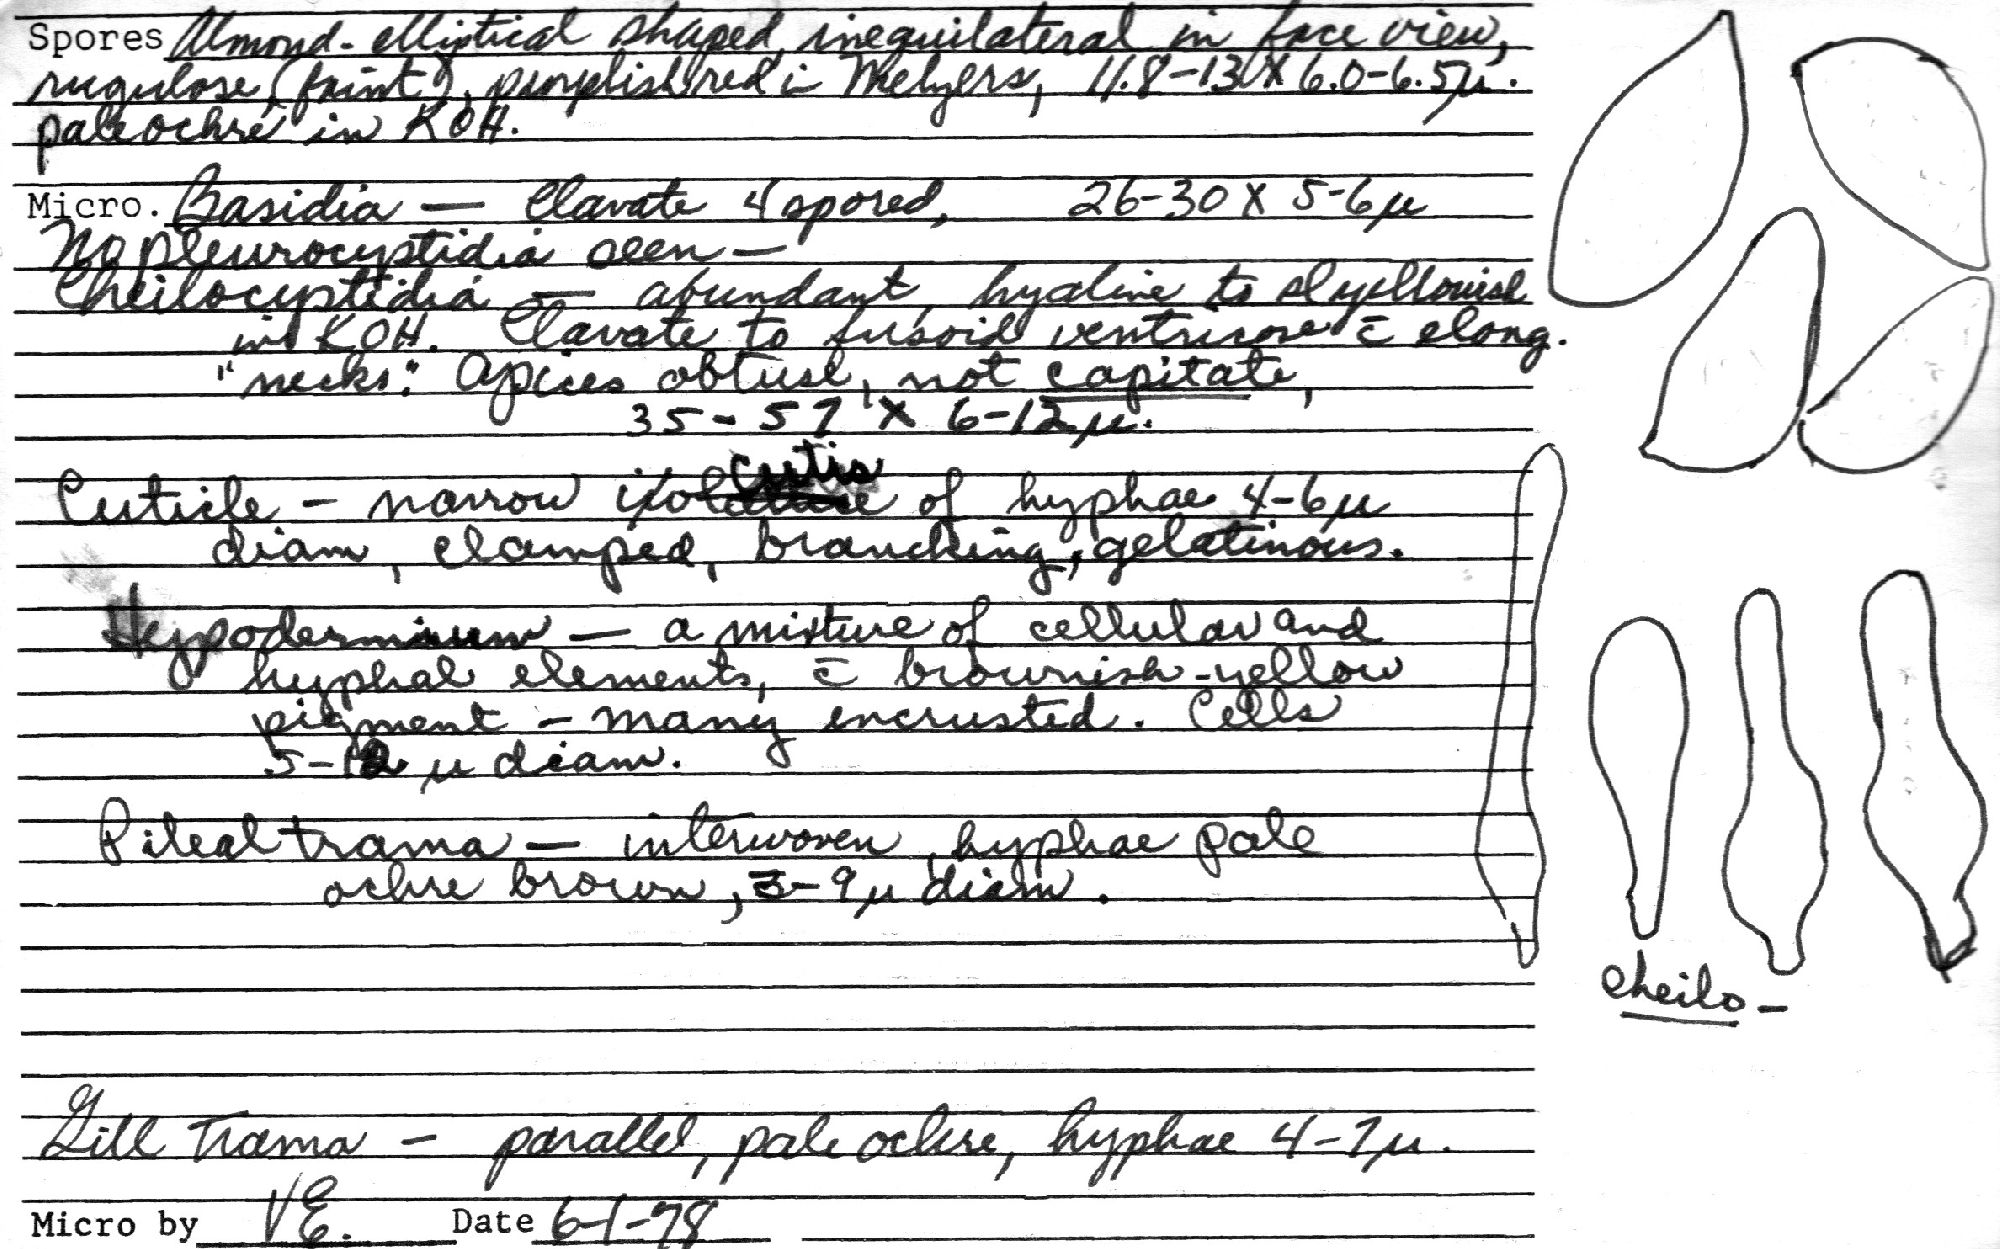 Spores Almond-elliptical shaped, inequilateral in face view,
rugulose (faint), purplish red in Melzers, 11.8-13 X 6.0-6.5µ.
pale ochre in KOH.
Micro. Basidia — Clavate 4 spored, 26-30 X 5-6µ
No pleurocystidia seen —
Cheilocystidia — abundant, hyaline to sl yellowish
in KOH. Clavate to fusoid ventricose c̄ elong.
"necks". Apices obtuse, not capitate,
35-57 X 6-12µ.
Cuticle - narrow ixocutis of hyphae 4-6µ
diam, clamped, branching, gelatinous.
Hypodermium — a mixture of cellular and
hyphal elements, c̄ brownish-yellow
pigment - many encrusted. Cells
5-12 µ diam.
Pileal trama — interwoven, hyphae pale
ochre brown, 3-9µ diam.
cheilo-
Gill Trama - parallel, pale ochre, hyphae 4-7µ.
Micro by VE. Date 6-1-78